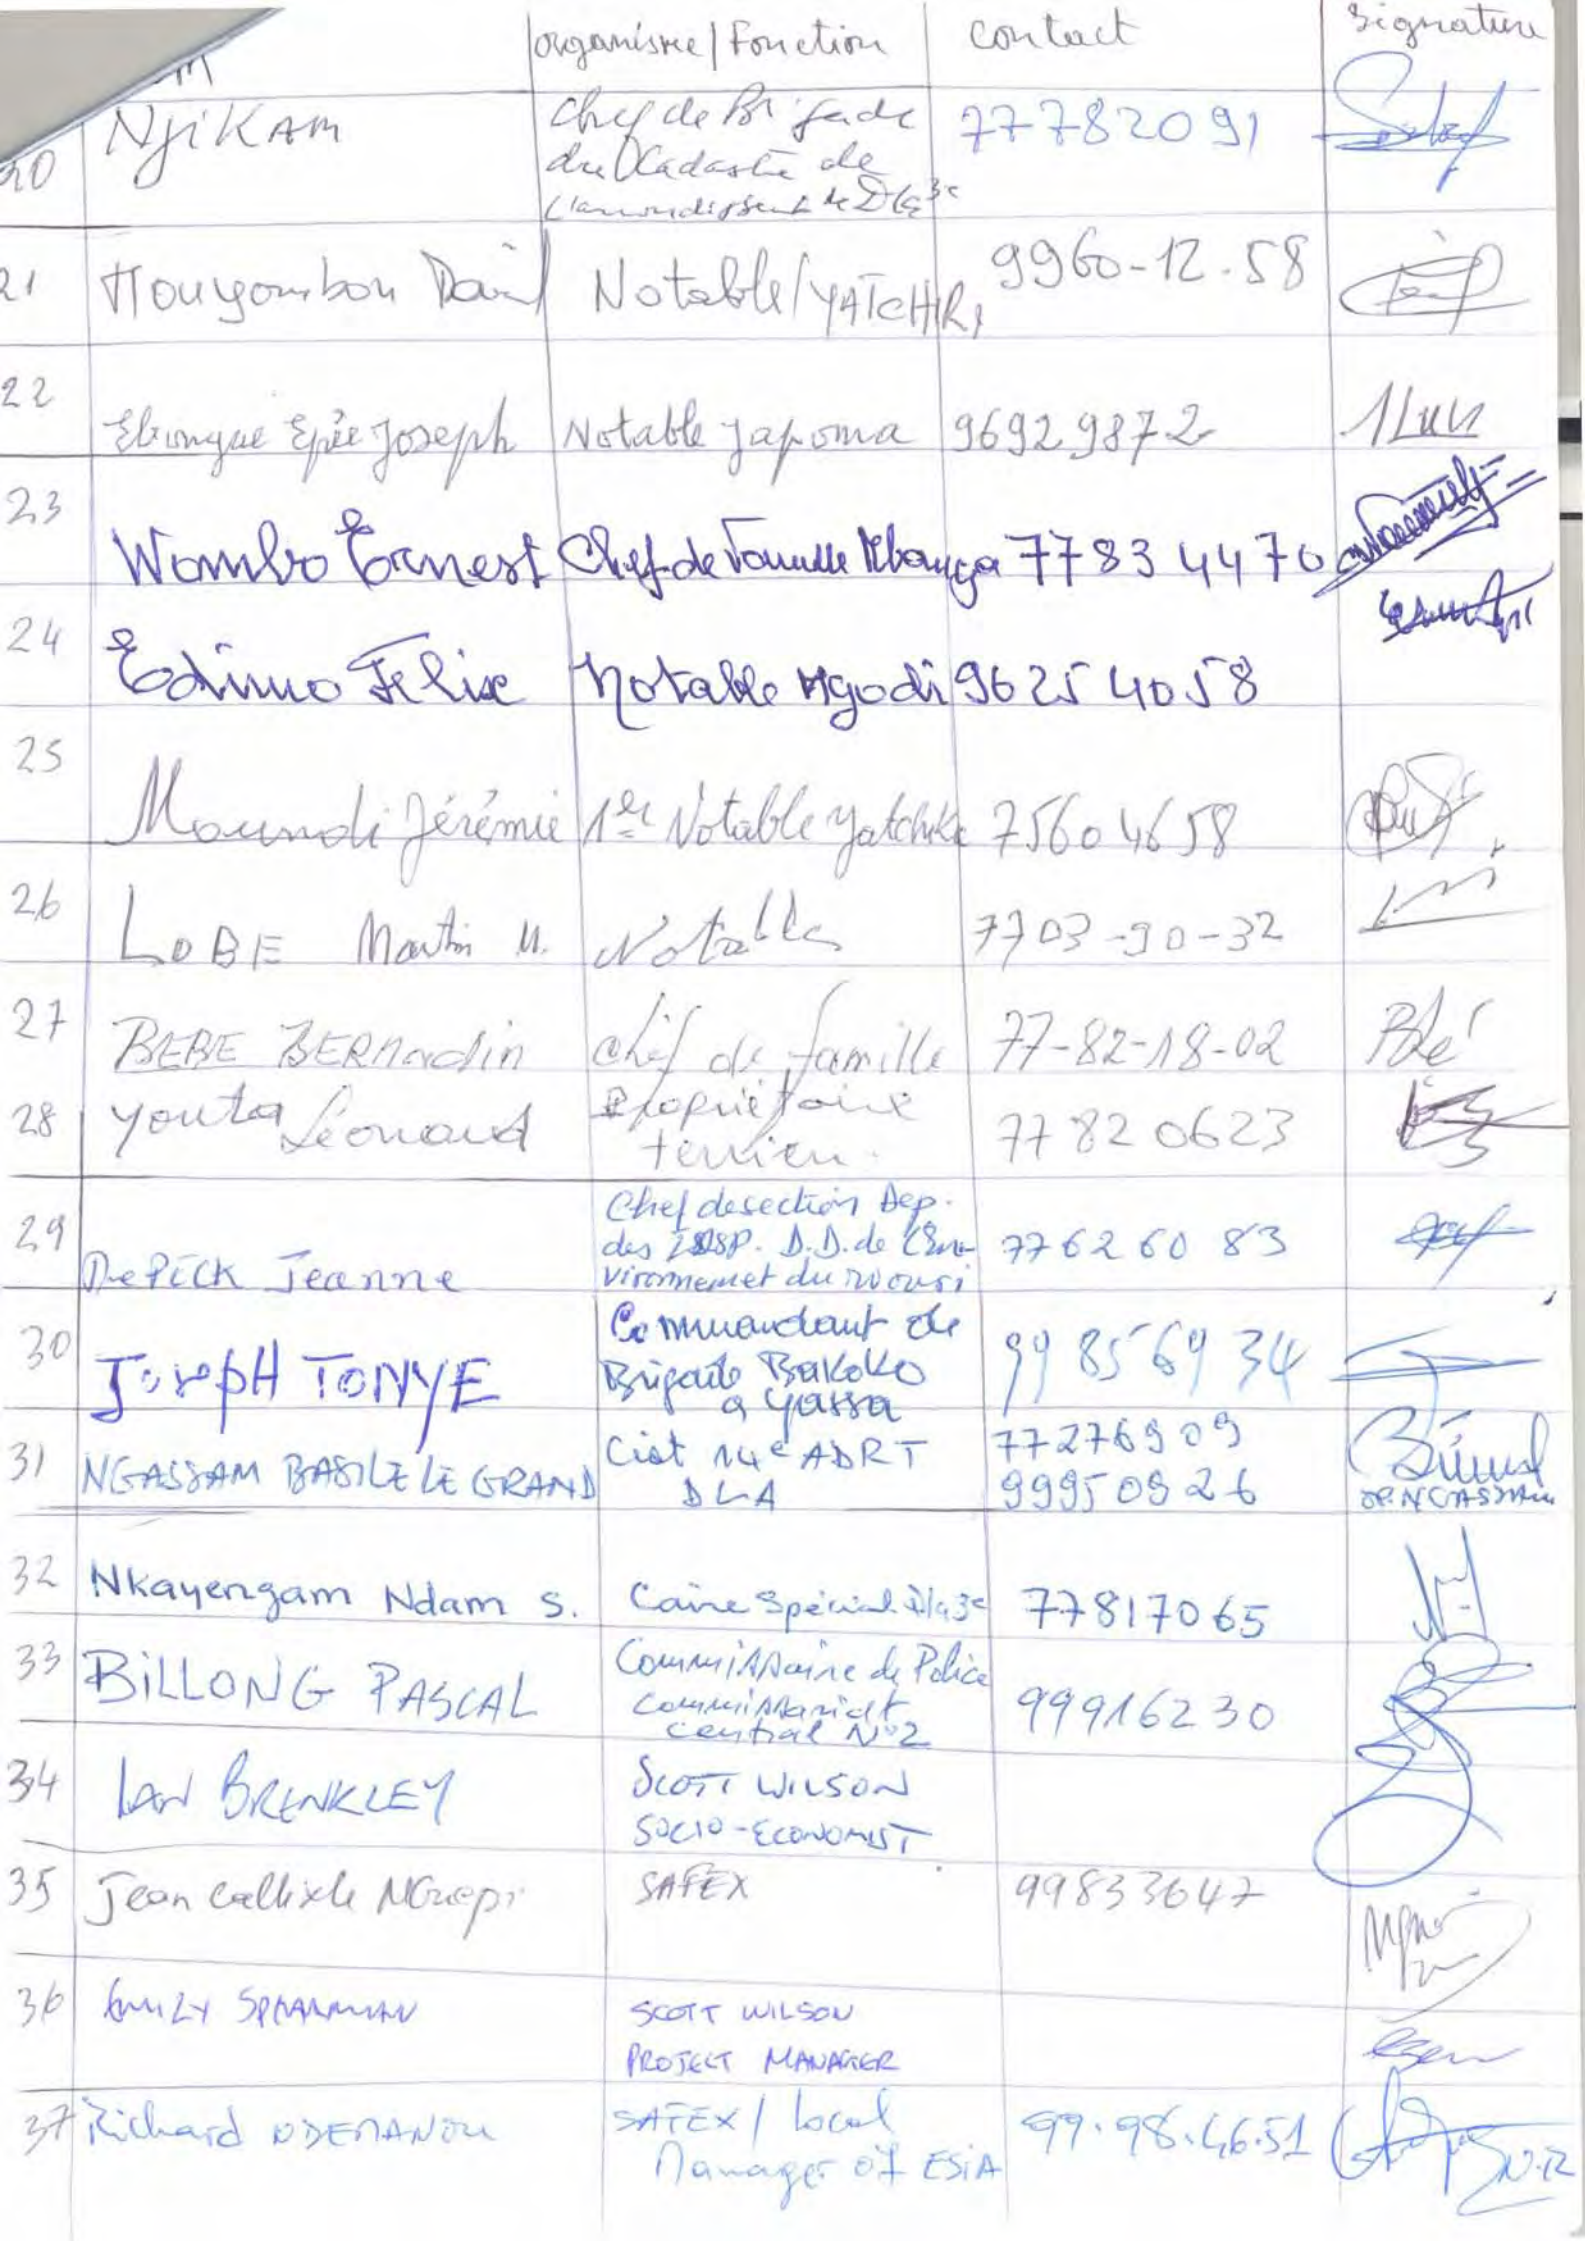 organisme/Fonction contact Signature
20 NJiKAM Chef de Brigade 77782091
du Cadastre de
l'arrondissement de Dla 3e
21 Mouyombon David Notable/YATCHIKA 9960-12.58
22 Ebongue Epée Joseph Notable Japoma 96929872
23 Wombo Ernest Chef de Famille Mbanga 77834470
24 Edimo Felix Notable Ngodi 96254058
25 Moundi Jérémie 1er Notable Yatchika 75604658
26 LOBE Martin M. Notable 7703-90-32
27 BEBE BERNadin chef de famille 77-82-18-02
28 Youta Léonard Propriétaire 77820623
terrien.
29 DePICK Jeanne Chef de section Dep. 77626083
des D.D. de l'En-
vironnemet du Wouri
30 JosepH TONYE Commandant de 99856934
Brigade BAKOKO
a yassa
31 NGASSAM BASILE LE GRAND Cist 14e ADRT 77276909
DLA 99950926
OP. NGASSAM
32 Nkayengam Ndam S. Spécial Dla 3e 77817065
33 BILLONG PASCAL Commissaire de Police 99916230
Commissariat
central N°2
34 IAN BRENKLEY SCOTT WILSON
SOCIO-ECONOMIST
35 Jean Callixte NGuepi SAFEX 99833647
36 EMILY SPEARMAN SCOTT WILSON
PROJECT MANAGER
37 Richard NDEMANOU SAFEX / Local 99.98.46.51
Manager of ESIA
N.R